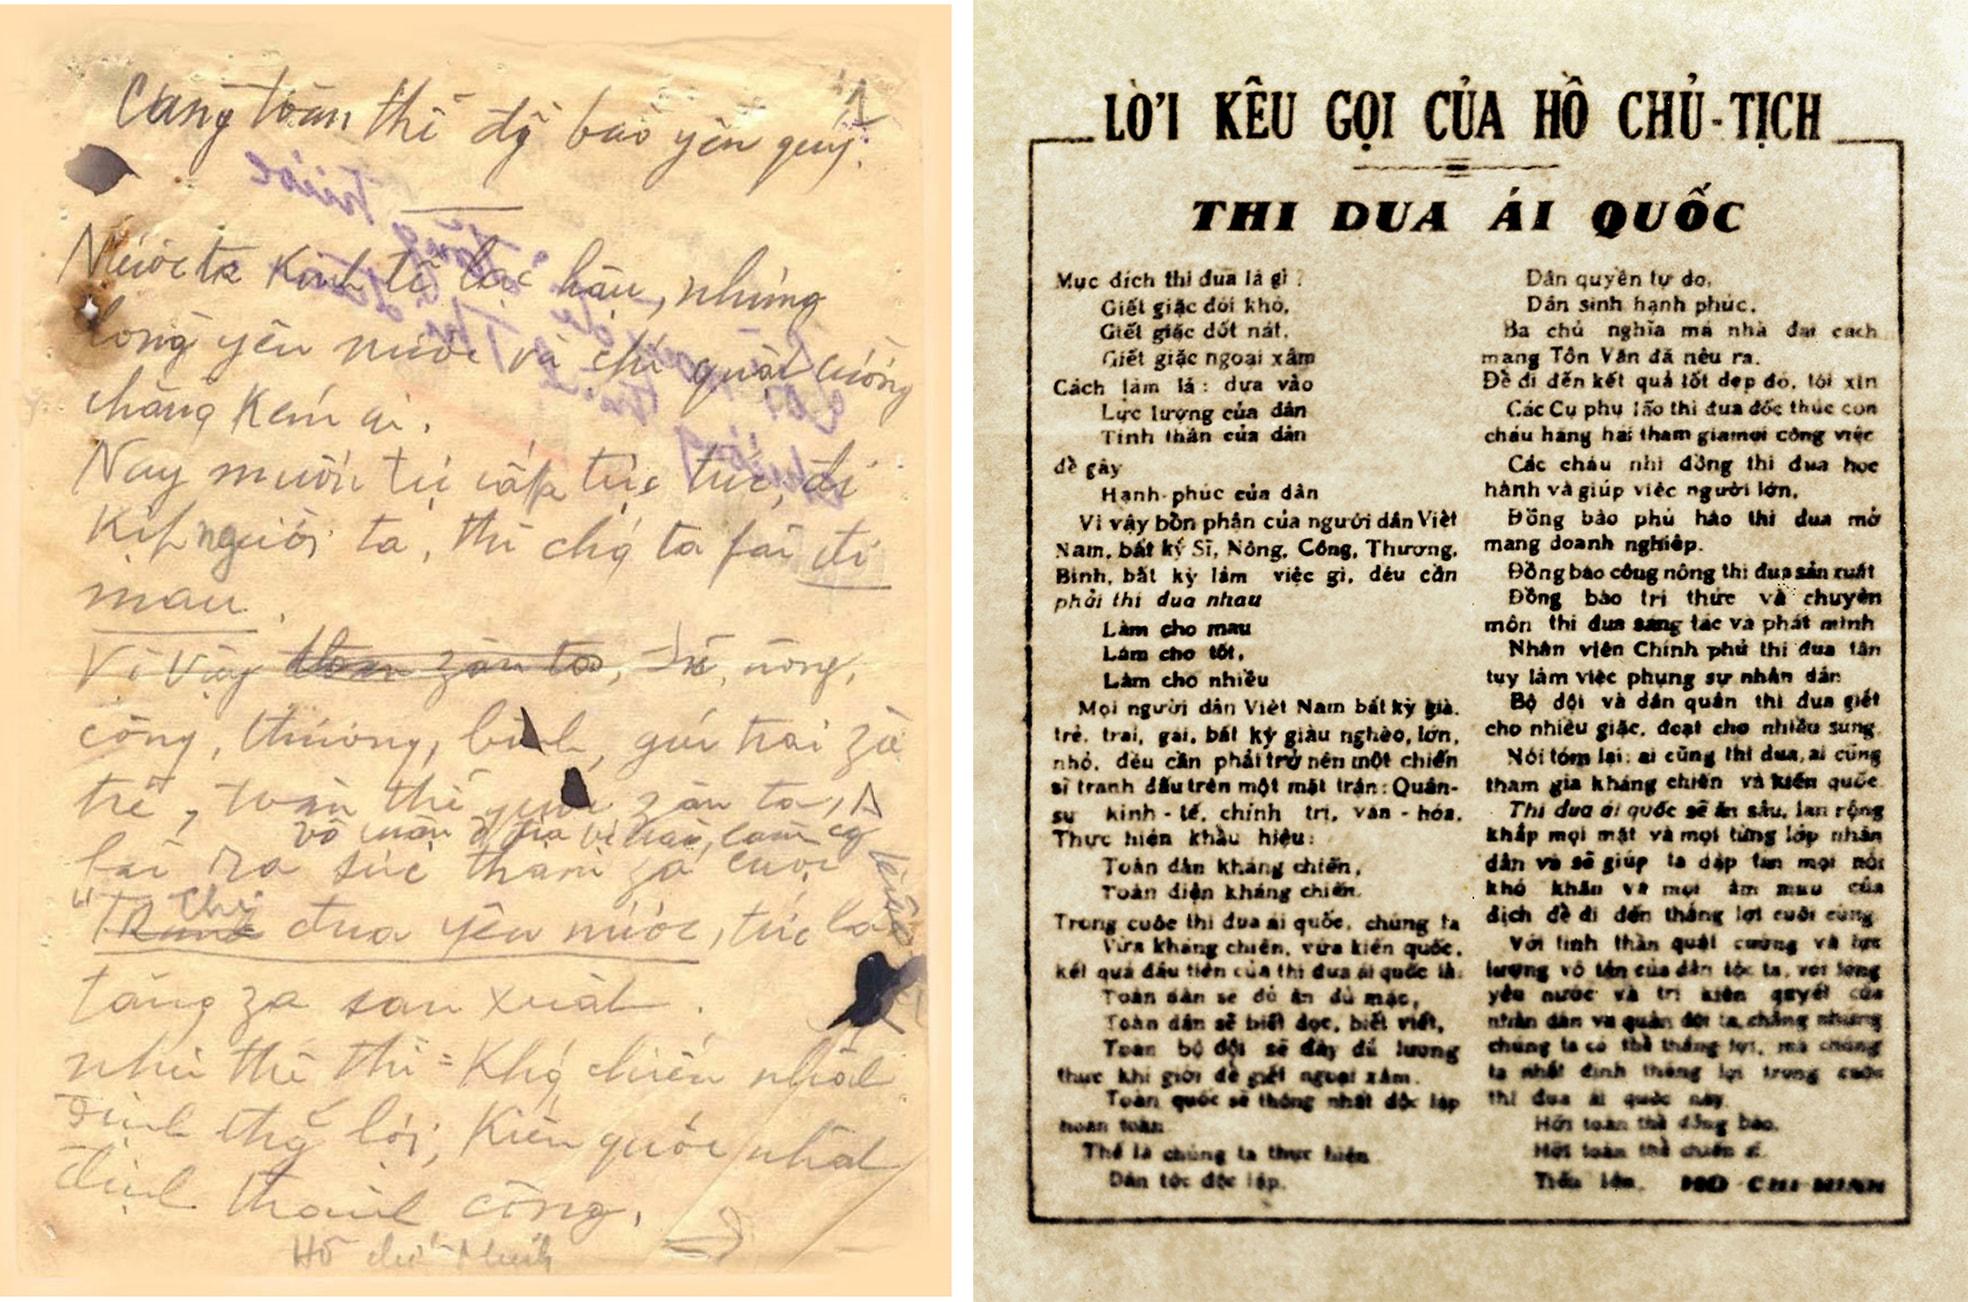 Cùng toàn thể đg bào yêu quý.
1
Nước ta kinh tế lạc hậu, nhưng
lòng yêu nước và chí quật cường
chẳng kém ai.
Nay muốn tự cấp tự túc, đi
kịp người ta, thì chg ta fải đi
mau.
Vì vậy zân ta, sĩ, nông,
công, thương, binh, gái trai zà
trẻ, toàn thể zân ta,
vô luận ở địa vị nào, làm
ra sức tham za cuộc
"Thi đua yêu nước, tức là
tăng za sản xuất.
như thế thì khg chiến nhất
định thg lợi, kiến quốc nhất
định thành công.
Hồ Chí Minh
LỜI KÊU GỌI CỦA HỒ CHỦ-TỊCH
THI ĐUA ÁI QUỐC
Mục đích thi đua là gì?
Giết giặc đói khổ,
Giết giặc dốt nát,
Giết giặc ngoại xâm
Cách làm là: dựa vào
Lực lượng của dân
Tinh thần của dân
để gây
Hạnh-phúc của dân
Vì vậy bổn phận của người dân Việt
Nam, bất kỳ Sĩ, Nông, Công, Thương,
Binh, bất kỳ làm việc gì, đều cần
phải thi đua nhau
Làm cho mau
Làm cho tốt,
Làm cho nhiều
Mọi người dân Việt Nam bất kỳ già,
trẻ, trai, gái, bất kỳ giàu nghèo, lớn,
nhỏ, đều cần phải trở nên một chiến
sĩ tranh đấu trên một mặt trận: Quân-
sự kinh-tế, chính trị, văn-hóa,
Thực hiện khẩu hiệu:
Toàn dân kháng chiến,
Toàn diện kháng chiến.
Trong cuộc thi đua ái quốc, chúng ta
Vừa kháng chiến, vừa kiến quốc,
kết quả đầu tiên của thi đua ái quốc là:
Toàn dân sẽ đủ ăn đủ mặc,
Toàn dân sẽ biết đọc, biết viết,
Toàn bộ đội sẽ đầy đủ lương
thực khí giới để giết ngoại xâm.
Toàn quốc sẽ thống nhất độc lập
hoàn toàn
Thế là chúng ta thực hiện
Dân tộc độc lập.
Dân quyền tự do,
Dân sinh hạnh phúc,
Ba chủ nghĩa mà nhà đại cách
mạng Tôn Văn đã nêu ra.
Để đi đến kết quả tốt đẹp đó, tôi xin
Các Cụ phụ lão thi đua đốc thúc con
cháu hăng hái tham gia mọi công việc
Các cháu nhi đồng thi đua học
hành và giúp việc người lớn,
Đồng bào phú hào thi đua mở
mang doanh nghiệp.
Đồng bào công nông thi đua sản xuất
Đồng bào trí thức và chuyên
môn thi đua sáng tác và phát minh
Nhân viên Chính phủ thi đua tận
tụy làm việc phụng sự nhân dân
Bộ đội và dân quân thi đua giết
cho nhiều giặc, đoạt cho nhiều súng.
Nói tóm lại: ai cũng thi đua, ai cũng
tham gia kháng chiến và kiến quốc.
Thi đua ái quốc sẽ ăn sâu, lan rộng
khắp mọi mặt và mọi từng lớp nhân
dân và sẽ giúp ta dập tan mọi nỗi
khó khăn và mọi âm mưu của
địch để đi đến thắng lợi cuối cùng.
Với tinh thần quật cường và lực
lượng vô tận của dân tộc ta, với lòng
yêu nước và trí kiên quyết của
nhân dân và quân đội ta, chẳng những
chúng ta có thể thắng lợi, mà chúng
ta nhất định thắng lợi trong cuộc
thi đua ái quốc này.
Hỡi toàn thể đồng bào,
Hỡi toàn thể chiến sĩ.
Tiến lên. HỒ CHÍ MINH